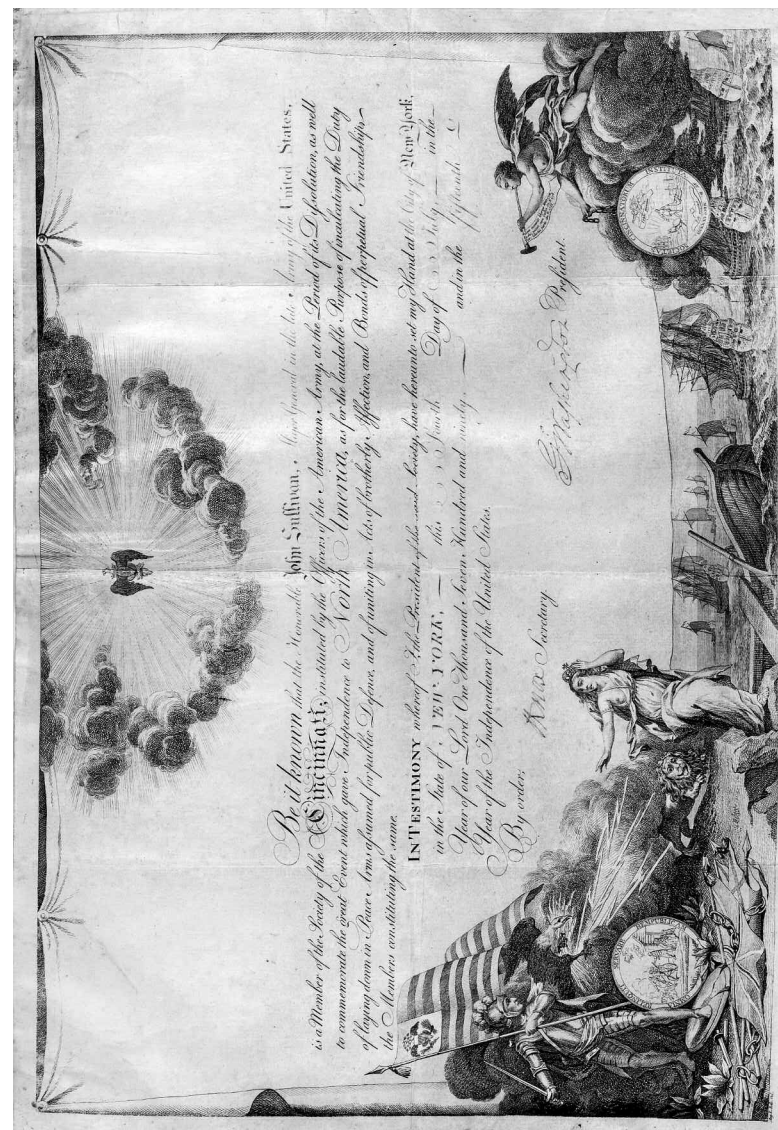 Be it known that the Honorable John Sullivan, Major General in the late Army of the United States,
is a Member of the Society of the Cincinnati; instituted by the Officers of the American Army, at the Period of its Dissolution, as well
to commemorate the great Event which gave Independence to North America, as for the laudable Purpose of inculcating the Duty
of laying down in Peace Arms assumed for public Defence, and of uniting in Acts of brotherly Affection, and Bonds of perpetual Friendship,
the Members constituting the same.
IN TESTIMONY whereof I, the President of the said Society, have hereunto set my Hand at the City of New York,
in the State of NEW-YORK, this Fourth Day of July, in the
Year of our Lord One Thousand Seven Hundred and ninety, and in the fifteenth
Year of the Independence of the United States.
By order,
Knox Secretary
G. Washington President.